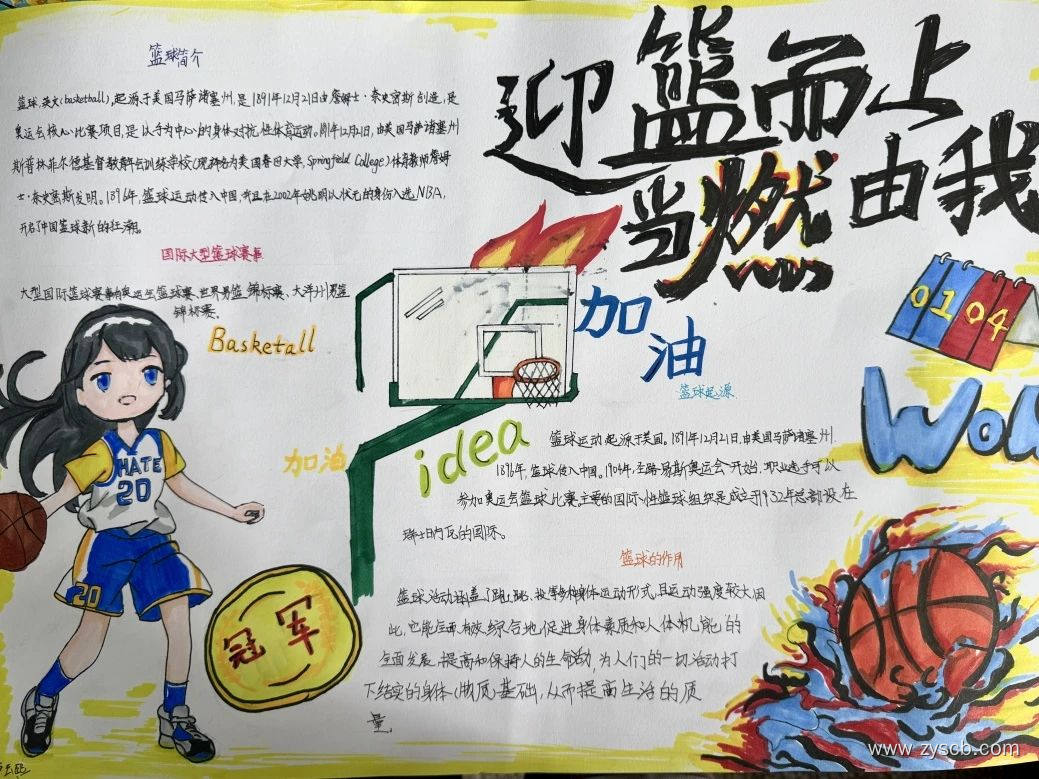 篮球简介
篮球,英文(basketball),起源于美国马萨诸塞州,是1891年12月21日由詹姆士·奈史密斯创造,是
奥运会核心比赛项目,是以手为中心的身体对抗性体育运动。1891年12月21日,由美国马萨诸塞州
斯普林菲尔德基督教青年会训练学校(现称为美国春田大学,Springfield College)体育教师詹姆
士·奈史密斯发明。1896年,篮球运动传入中国,并且在2002年姚明以状元的身份入选NBA,
开启了中国篮球新的狂潮。
国际大型篮球赛事
大型国际篮球赛事有奥运会篮球赛、世界男篮锦标赛、大洋州男篮
锦标赛。
迎篮而上
当燃由我
Basketall
加油
0104
Wow
HATE
20
20
加油
idea
冠军
篮球起源
篮球运动起源于美国。1891年12月21日,由美国马萨诸塞州.
1896年,篮球传入中国。1904年,圣路易斯奥运会开始,职业选手可以
参加奥运会篮球比赛。主要的国际性篮球组织是成立于1932年总部设在
瑞士日内瓦的国际。
篮球的作用
篮球活动涵盖了跑、跳、投等多种身体运动形式,且运动强度较大因
此,它能全面、有效、综合地促进身体素质和人体机能的
全面发展,提高和保持人的生命活动,为人们的一切活动打
下结实的身体(物质)基础,从而提高生活的质
量,
www.zyscb.com